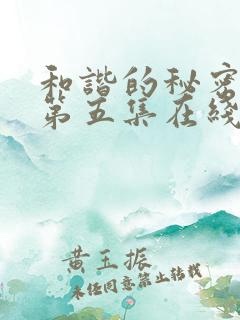 和諧的秘密
第五集在綫
黄玉振
未经同意禁止转载